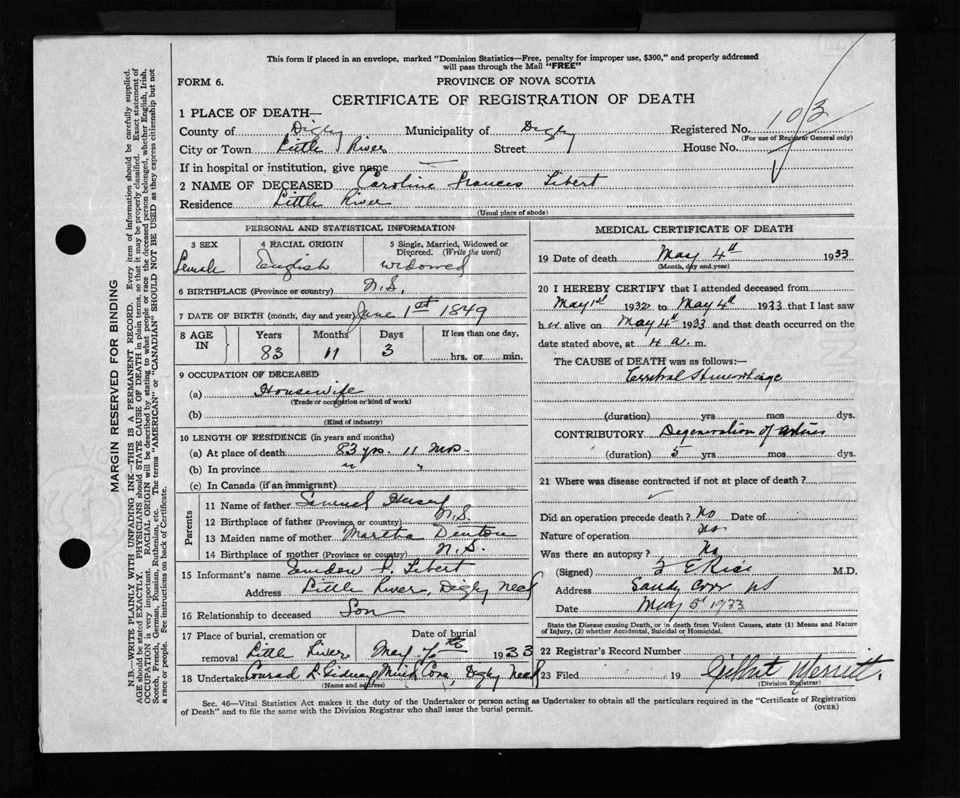 This form if placed in an envelope, marked "Dominion Statistics—Free, penalty for improper use, $300," and properly addressed
will pass through the Mail "FREE"
FORM 6.
PROVINCE OF NOVA SCOTIA
CERTIFICATE OF REGISTRATION OF DEATH
103
1 PLACE OF DEATH—
County of Digby Municipality of Digby Registered No.
(For use of Registrar General only)
City or Town Little River Street House No.
If in hospital or institution, give name —
2 NAME OF DECEASED Caroline Frances Tibert
Residence Little River
(Usual place of abode)
PERSONAL AND STATISTICAL INFORMATION
3 SEX 4 RACIAL ORIGIN 5 Single, Married, Widowed or
Divorced. (Write the word)
Female English widowed
6 BIRTHPLACE (Province or country) N.S.
7 DATE OF BIRTH (month, day and year) June 1st 1849
8 AGE IN Years Months Days If less than one day,
83 11 3 hrs. or min.
9 OCCUPATION OF DECEASED
(a) Housewife
(Trade or occupation or kind of work)
(b)
(Kind of industry)
10 LENGTH OF RESIDENCE (in years and months)
(a) At place of death 83 yrs. 11 mos.
(b) In province " "
(c) In Canada (if an immigrant)
Parents
11 Name of father Samuel Hersey
12 Birthplace of father (Province or country) N.S.
13 Maiden name of mother Martha Denton
14 Birthplace of mother (Province or country) N.S.
15 Informant's name P. Tibert
Address Little River, Digby Neck
16 Relationship to deceased Son
17 Place of burial, cremation or Date of burial
removal Little River May 6th 1933
18 Undertaker Conrad Gidney Mink Cove, Digby Neck
(Name and address)
MEDICAL CERTIFICATE OF DEATH
19 Date of death May 4th 1933
(Month, day and year)
20 I HEREBY CERTIFY that I attended deceased from
May 1st 1932 to May 4th 1933 that I last saw
h er alive on May 4th 1933 and that death occurred on the
date stated above, at 4 a. m.
The CAUSE of DEATH was as follows:—
Cerebral Hemorrhage
(duration) yrs mos dys.
CONTRIBUTORY Degeneration of arteries
(duration) 5 yrs mos dys.
21 Where was disease contracted if not at place of death?
Did an operation precede death? No Date of
Nature of operation No.
Was there an autopsy? No
(Signed) F E Rice M.D.
Address Sandy Cove NS
Date May 5th 1933
State the Disease causing Death, or in death from Violent Causes, state (1) Means and Nature
of Injury, (2) whether Accidental, Suicidal or Homicidal.
22 Registrar's Record Number
23 Filed 19 Gilbert Merritt.
(Division Registrar)
Sec. 46—Vital Statistics Act makes it the duty of the Undertaker or person acting as Undertaker to obtain all the particulars required in the "Certificate of Registration
of Death" and to file the same with the Division Registrar who shall issue the burial permit.
(OVER)
MARGIN RESERVED FOR BINDING
N.B.—WRITE PLAINLY WITH UNFADING INK—THIS IS A PERMANENT RECORD. Every item of information should be carefully supplied.
AGE should be stated EXACTLY. PHYSICIANS should STATE CAUSE OF DEATH in plain terms, so that it may be properly classified. Exact statement of
OCCUPATION is very important. RACIAL ORIGIN will be described by stating to what people or race the deceased person belonged, whether English, Irish,
Scotch, French, German, Russian, Ruthenian, etc. The terms "AMERICAN" or "CANADIAN" SHOULD NOT BE USED as they express citizenship but not
a race or people. See instructions on back of Certificate.